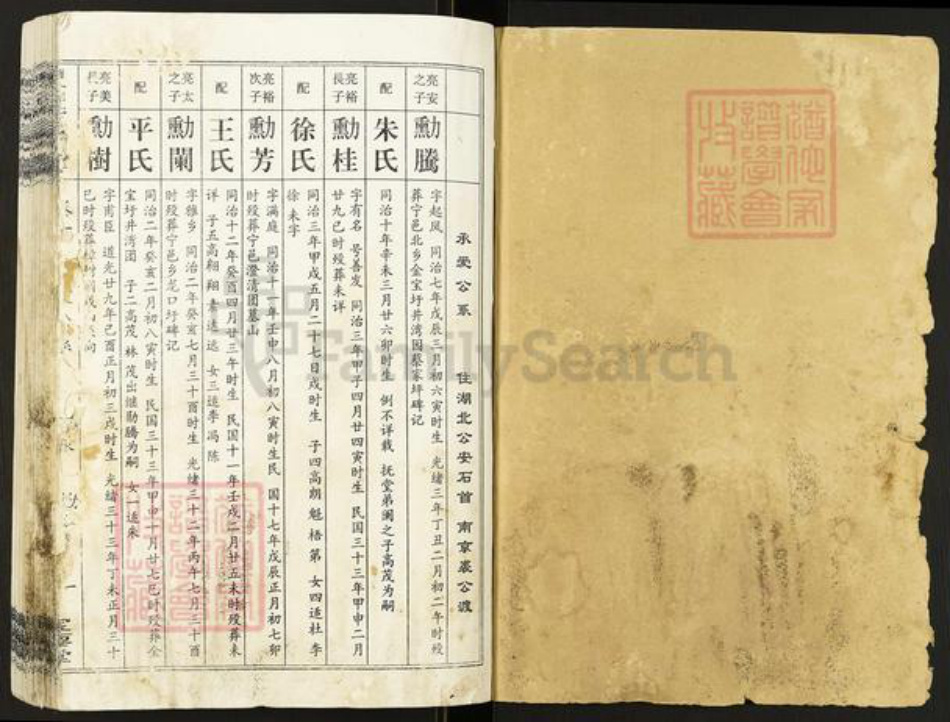 承爱公系 住湖北公安石首 南京裘公渡
亮安之子 勳騰 字起凤 同治七年戊辰三月初六寅时生 光绪三年丁丑二月初二午时殁
葬宁邑北乡金宝圩井湾团蔡家坪碑记
配 朱氏 同治十年辛未三月廿六卯时生 例不详载 抚堂弟阑之子高茂为嗣
亮裕長子 勳桂 字有名 号善发 同治三年甲子四月廿四寅时生 民国三十三年甲申二月
廿九已时殁葬未详
配 徐氏 同治三年甲戌五月二十七日戌时生 子四高朗 魁 梧 第 女四适杜 李
徐 未字
亮裕次子 勳芳 字满庭 同治十一年壬申八月初八寅时生民 国十七年戊辰正月初七卯
时殁葬宁邑澄清团墓山
配 王氏 同治十二年癸酉四月廿三午时生 民国十一年壬戌二月廿五未时殁葬未
详 子五高翱 翔 女三适李 冯 陈
亮太之子 勳闌 字雅乡 同治二年癸亥七月三十酉时生 光绪三十二年丙午七月三十酉
时殁葬宁邑乡龙口圩碑记
配 平氏 同治二年癸亥二月初八寅时生 民国三十三年甲申十月廿七巳时殁葬金
宝圩井湾团 子二高茂 林 茂出继勛騰为嗣 女一适朱
亮美長子 勳樹 字甫臣 道光廿九年己酉正月初三戌时生 光绪三十三年丁未正月三十
已时殁葬
FamilySearch